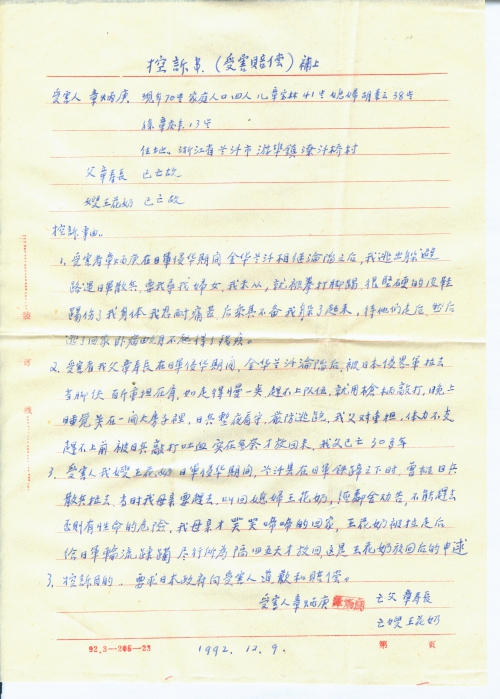 控訴书（受害賠偿）補上
受害人 章炳庚 现年70岁 家庭人口四人 儿章宝林41岁 媳婦 胡 38岁
孫 章 13岁
住址 浙江省兰溪市游埠鎮 溪桥村
父章寿長 已亡故
嫂王花奶 已亡故
控訴事由。
1. 受害者章炳庚在日軍侵华期间 金华兰溪相继淪陷之后，我逃出躲避
路遇日軍散兵 要我尋找婦女，我未从，就被拳打脚踢 很坚硬的皮鞋
踢伤了我身体 我忍耐痛苦 后乘其不备 我 了起来，待他們走后 然后
逃了回家 卧病 月不起得了残疾。
2. 受害者我父章寿長在日軍侵华期间，金华兰溪淪陷后，被日本侵畧軍拉去
当脚伕 百斤重担在肩，如走得慢一类 趕不上队伍，就用槍柄敲打，晚上
睡觉关在一间大房子裡，日兵整夜看守，嚴防逃跑，我父对重担，体力不支
趕不上前 被日兵敲打吐血 实在无奈才放回来，我父已亡30多年
3. 受害人我嫂王花奶 日軍侵华期间，兰溪县在日軍铁蹄之下时，曾被日兵
散兵拉去，当时我母亲要趕去 叫回媳婦王花奶， 鄰舍劝告，不能趕去
否則有性命的危险，我母亲才哭哭啼啼的回家，王花奶被拉走后
给日軍輪流蹂躏 尽行所为 隔四五天才放回 这是王花奶放回后的申述
3. 控訴目的．要求日本政府向受害人道歉和賠偿。
受害人章炳庚 亡父章寿長
亡嫂王花奶
92.3—205—23 第 頁
1992. 12. 9.
装 订 线